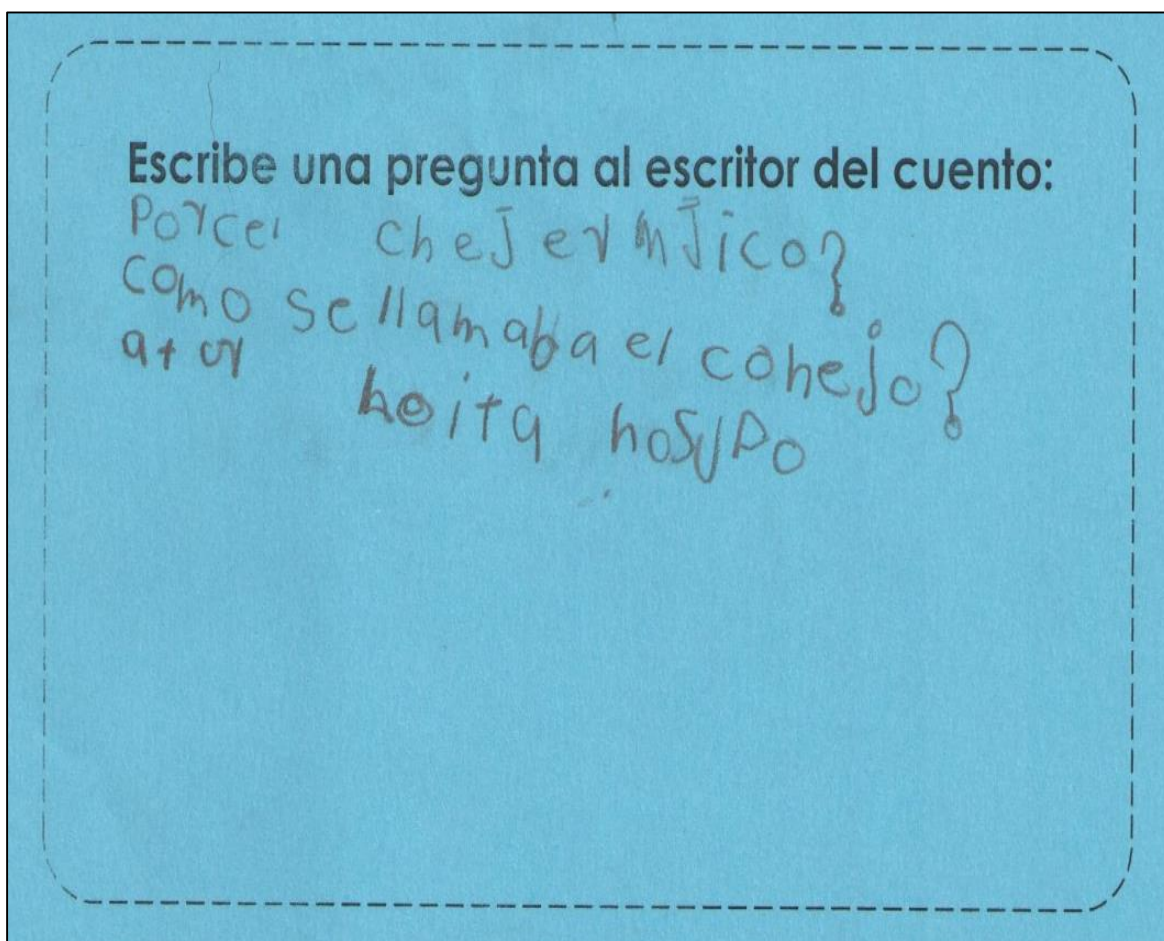 Escribe una pregunta al escritor del cuento:
Porcel chej er mJico?
como se llamaba el conejo?
ator
noita nosupo